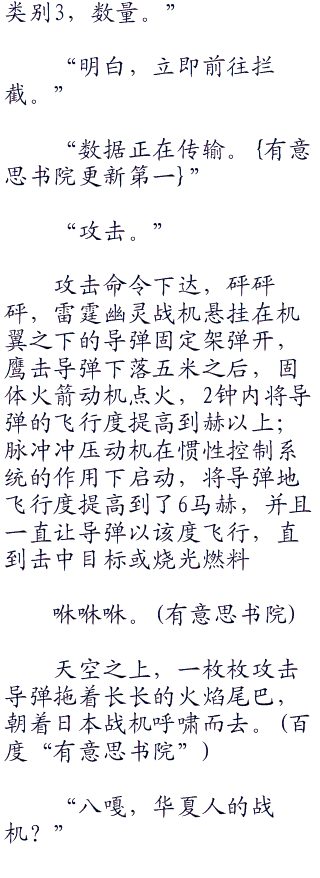 类别3，数量。”
“明白，立即前往拦
截。”
“数据正在传输。{有意
思书院更新第一}”
“攻击。”
攻击命令下达，砰砰
砰，雷霆幽灵战机悬挂在机
翼之下的导弹固定架弹开，
鹰击导弹下落五米之后，固
体火箭动机点火，2钟内将导
弹的飞行度提高到赫以上；
脉冲冲压动机在惯性控制系
统的作用下启动，将导弹地
飞行度提高到了6马赫，并且
一直让导弹以该度飞行，直
到击中目标或烧光燃料
咻咻咻。(有意思书院)
天空之上，一枚枚攻击
导弹拖着长长的火焰尾巴，
朝着日本战机呼啸而去。(百
度“有意思书院”)
“八嘎，华夏人的战
机？”